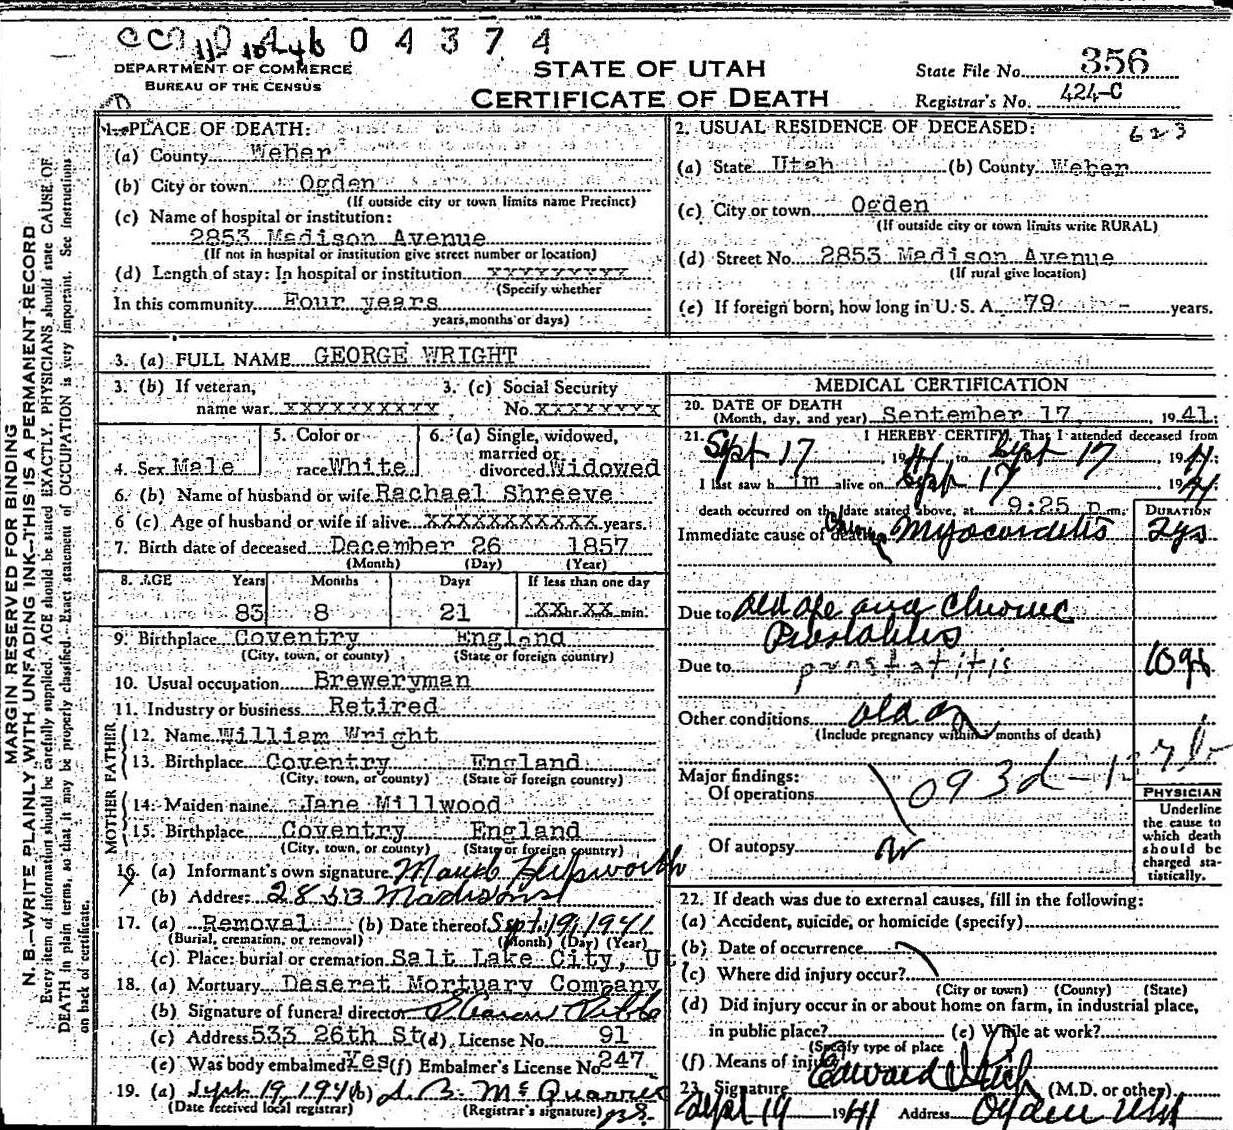 04374
DEPARTMENT OF COMMERCE
BUREAU OF THE CENSUS
STATE OF UTAH
CERTIFICATE OF DEATH
State File No. 356
Registrar's No. 424-C
1. PLACE OF DEATH:
(a) County Weber
(b) City or town Ogden
(If outside city or town limits name Precinct)
(c) Name of hospital or institution:
2853 Madison Avenue
(If not in hospital or institution give street number or location)
(d) Length of stay: In hospital or institution xxxxxxxxx
(Specify whether
In this community Four years
years, months or days)
2. USUAL RESIDENCE OF DECEASED: 623
(a) State Utah (b) County Weber
(c) City or town Ogden
(If outside city or town limits write RURAL)
(d) Street No. 2853 Madison Avenue
(If rural give location)
(e) If foreign born, how long in U. S. A. 79 years.
3. (a) FULL NAME GEORGE WRIGHT
3. (b) If veteran, name war xxxxxxxxxx
3. (c) Social Security No. xxxxxxxx
4. Sex Male
5. Color or race White
6. (a) Single, widowed, married or divorced Widowed
6. (b) Name of husband or wife Rachael Shreeve
6 (c) Age of husband or wife if alive XXXXXXXXXXX years.
7. Birth date of deceased December 26 1857
(Month) (Day) (Year)
8. AGE Years Months Days If less than one day
83 8 21 XX hr. XX min.
9. Birthplace Coventry England
(City, town, or county) (State or foreign country)
10. Usual occupation Breweryman
11. Industry or business Retired
FATHER
12. Name William Wright
13. Birthplace Coventry England
(City, town, or county) (State or foreign country)
MOTHER
14. Maiden name Jane Millwood
15. Birthplace Coventry England
(City, town, or county) (State or foreign country)
16. (a) Informant's own signature Maud Hepworth
(b) Address 2853 Madison
17. (a) Removal (b) Date thereof Sept. 19, 1941
(Burial, cremation, or removal) (Month) (Day) (Year)
(c) Place: burial or cremation Salt Lake City, Ut.
18. (a) Mortuary Deseret Mortuary Company
(b) Signature of funeral director
(c) Address 533 26th St (d) License No. 91
(e) Was body embalmed Yes (f) Embalmer's License No. 247
19. (a) Sept 19, 1941 (b)
(Date received local registrar) (Registrar's signature)
MEDICAL CERTIFICATION
20. DATE OF DEATH
(Month, day, and year) September 17, 1941.
21. I HEREBY CERTIFY, That I attended deceased from
Sept 17 1941 to Sept 17 1941
I last saw h im alive on Sept 17 1941
death occurred on the date stated above, at 9:25 p.m.
DURATION
Immediate cause of death Chronic Myocarditis 2 ys
Due to old age and Chronic
Prostatitis
Due to prostatitis 10 ys
Other conditions old age
(Include pregnancy within months of death)
Major findings:
Of operations 093d-1
Of autopsy no
PHYSICIAN
Underline
the cause to
which death
should be
charged sta-
tistically.
22. If death was due to external causes, fill in the following:
(a) Accident, suicide, or homicide (specify)
(b) Date of occurrence
(c) Where did injury occur?
(City or town) (County) (State)
(d) Did injury occur in or about home on farm, in industrial place,
in public place? (e) While at work?
(Specify type of place
(f) Means of injury
23. Signature Edward I Rich (M.D. or other)
Sept 19 1941 Address Ogden Utah
MARGIN RESERVED FOR BINDING
N. B.—WRITE PLAINLY WITH UNFADING INK—THIS IS A PERMANENT RECORD
Every item of information should be carefully supplied. AGE should be stated EXACTLY. PHYSICIANS should state CAUSE OF
DEATH in plain terms, so that it may be properly classified. Exact statement of OCCUPATION is very important. See instructions
on back of certificate.